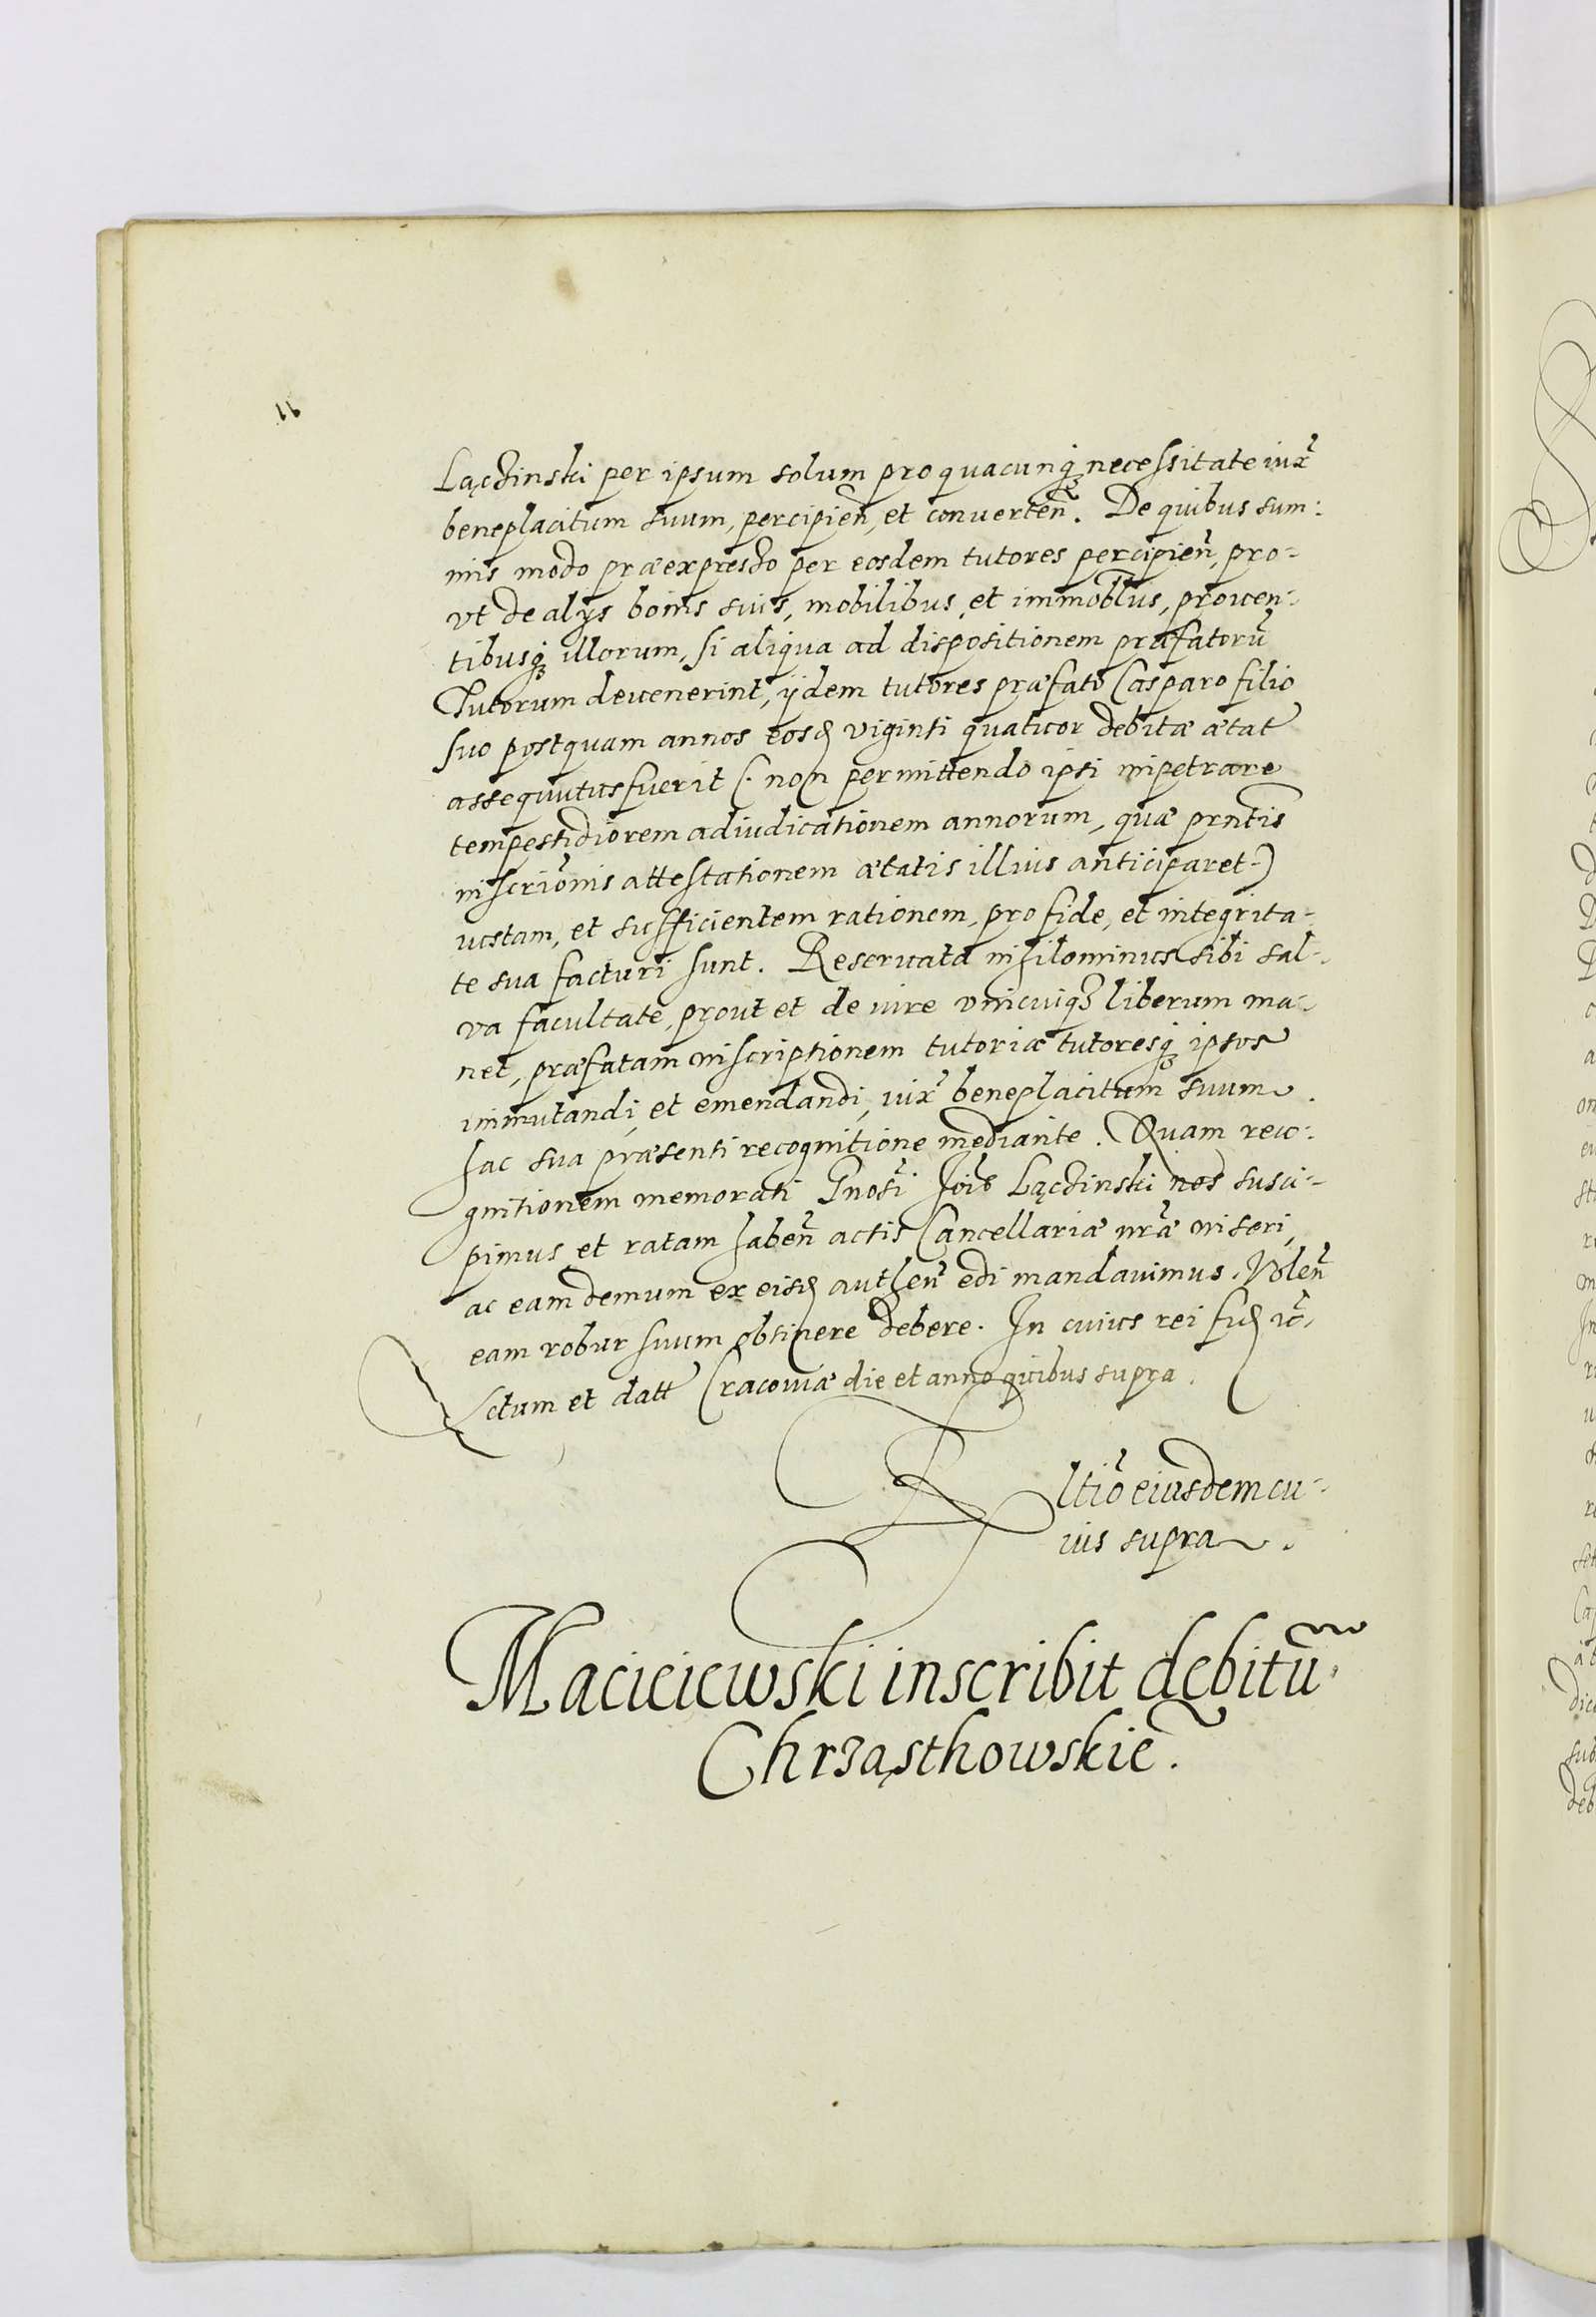 11
Lączinski per ipsum solum pro quacunq₃ necessitate iux̃
beneplacitum suum, percipień, et conuerteñ. De quibus sum:
mis modo præexpresso per eosdem tutores percipień, pro-
vt de alijs bonis suis, mobilibus, et immob̃lus, prouen-
tibusq₃ illorum, si aliqua ad dispositionem præfatorũ
Tutorum deuenerint, ijdem tutores præfato Casparo filio
suo postquam annos eosd viginti quatuor debitæ ætat
assequutus fuerit (. non permittendo ipsi impetrare
tempestidiorem adiudicationem annorum, quæ prñtis
inscriõnis attestationem ætatis illius anticiparet.)
iustam, et sufficientem rationem, pro fide, et integrita-
te sua facturi sunt. Reseruata nihilominus sibi sal-
va facultate, prout et de iure vnicuiq₃ liberum ma-
net, præfatam inscriptionem tutoriæ tutoresq₃ ipsos
immutandi, et emendandi, iux̃ beneplacitum suum.
hac sua præsenti recognitione mediante. Quam reco-
gnitionem memorati Gnosi Jois Lączinski nos susci-
pimus et ratam habeñ actis Cancellariæ nr̃æ inseri,
ac eam demum ex eisd autheñ edi mandauimus. Voleñ
eam robur suum obtinere debere. In cuius rei fid ic̃.
Actum et datt Cracouiæ die et anno quibus supra.
Rltiõ eiusdem cu-
ius supra.
Macieiewski inscribit debitũ.
Chrząsthowskiẽ.